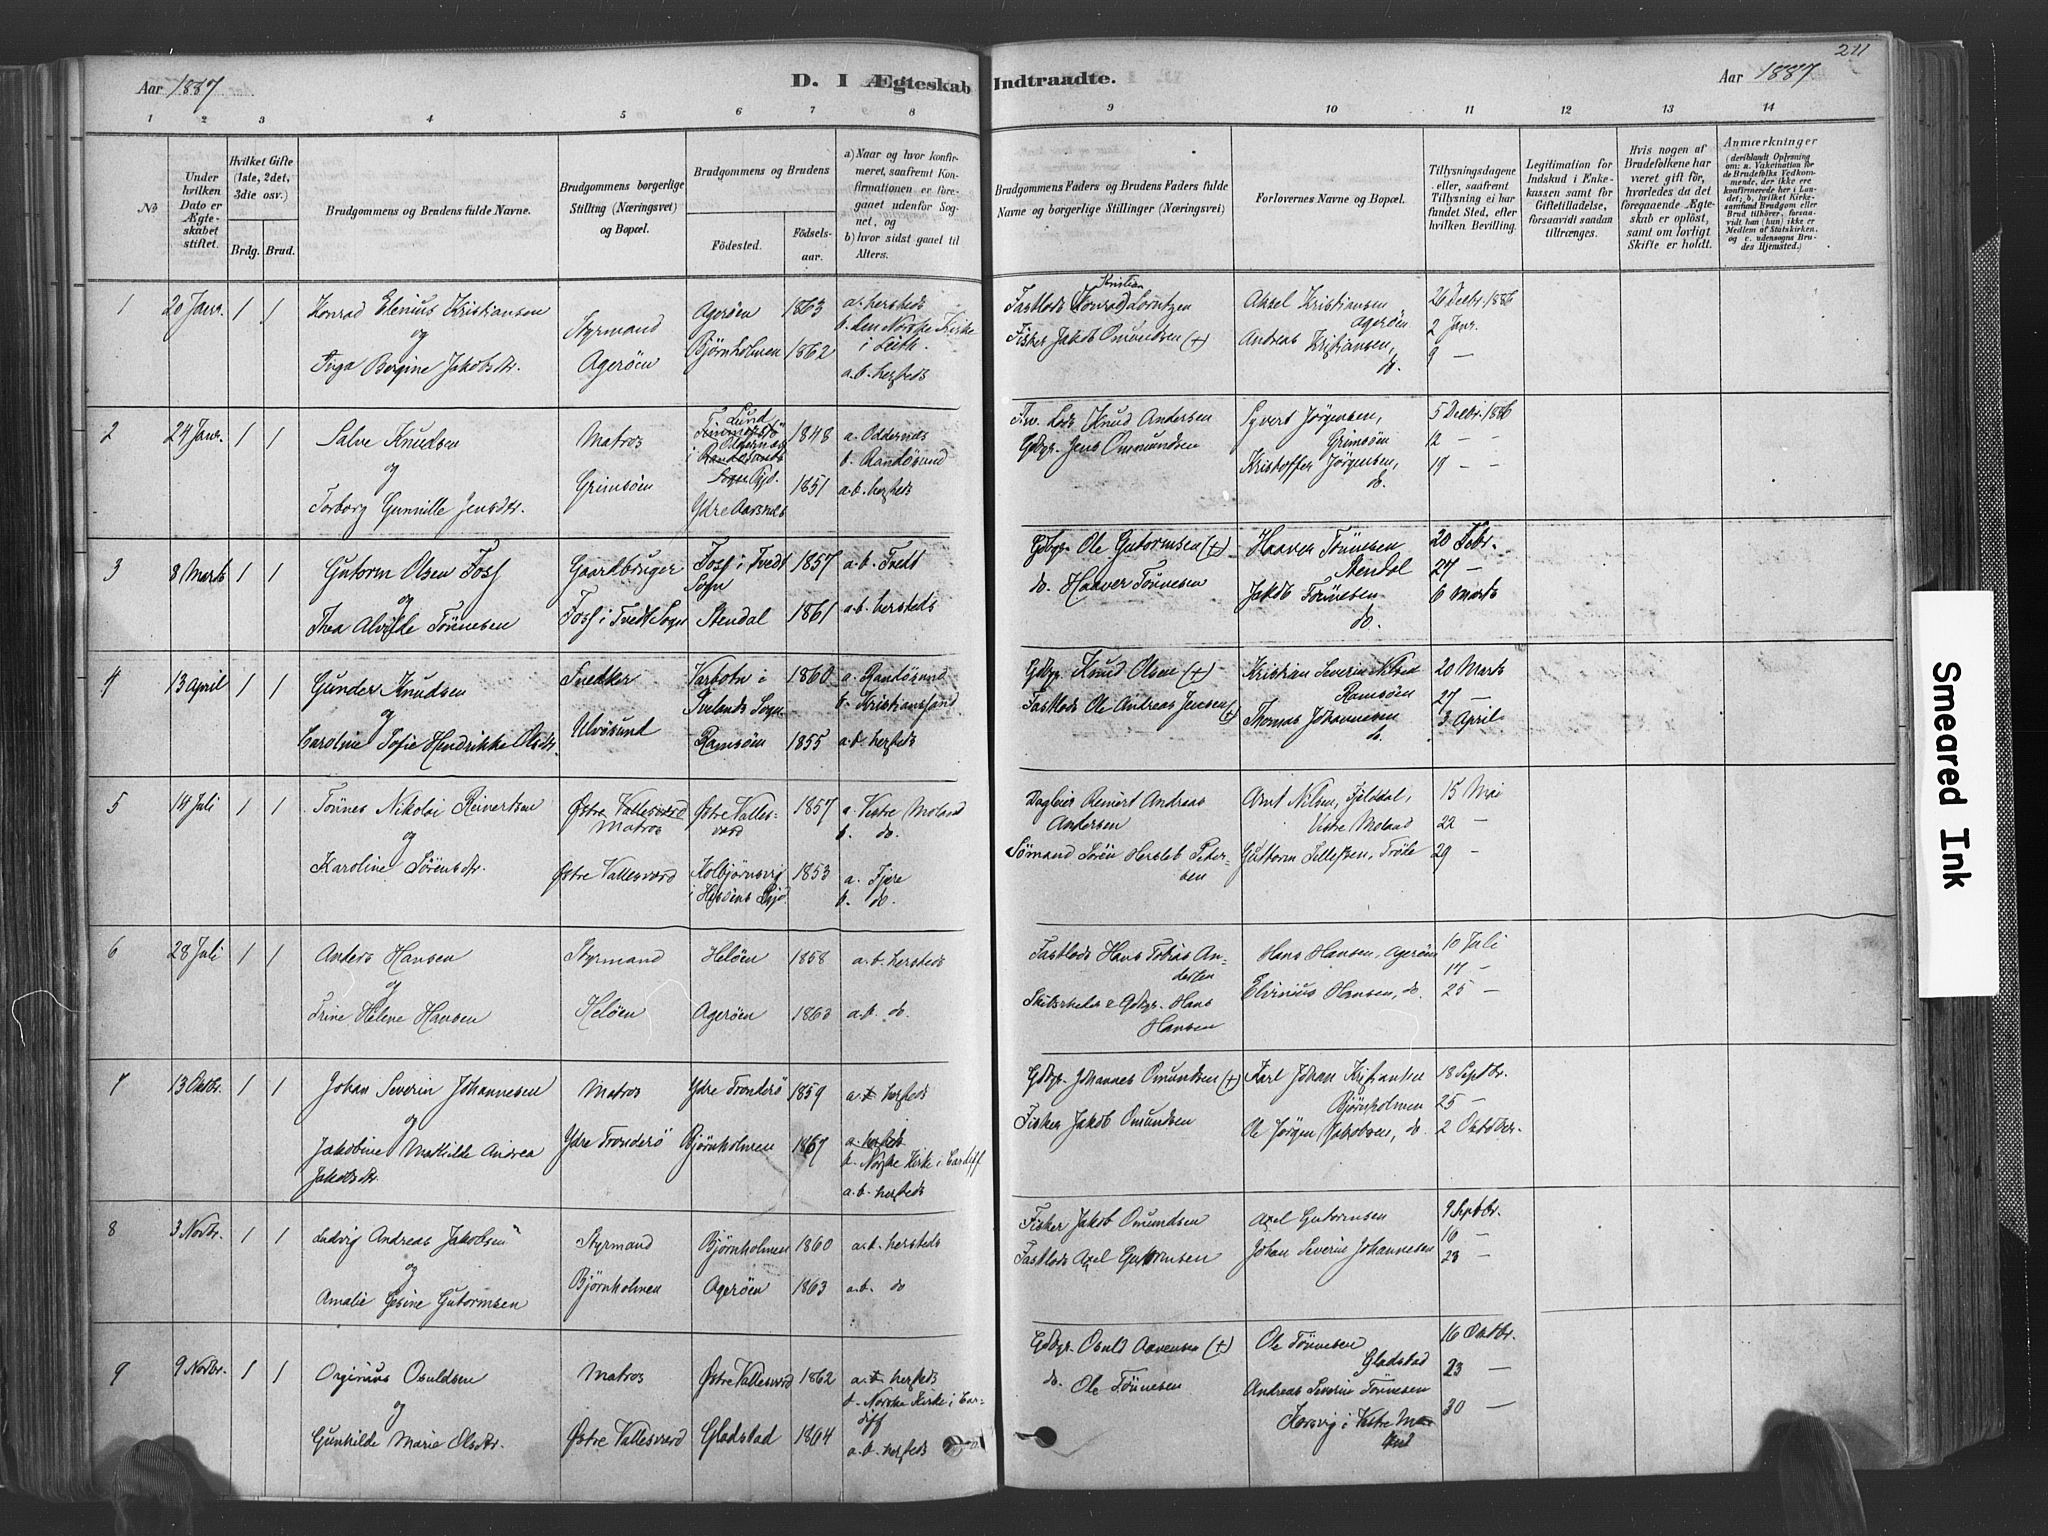 211
Aar 1887
D. I Ægteskab Indtraadte.
Aar 1887
1 2 3 4 5 6 7 8 9 10 11 12 13 14
№
Under hvilken Dato er Ægteskabet stiftet.
Hvilket Gifte (1ste, 2det, 3die osv.)
Brdg. Brud.
Brudgommens og Brudens fulde Navne.
Brudgommens borgerlige Stilling (Næringsvei) og Bopæl.
Brudgommens og Brudens
Fødested. Fødselsaar.
a) Naar og hvor konfirmeret, saafremt Konfirmationen er foregaaet udenfor Sognet, og
b) hvor sidst gaaet til Alters.
Brudgommens Faders og Brudens Faders fulde Navne og borgerlige Stillinger (Næringsvei)
Forlovernes Navne og Bopæl.
Tillysningsdagene eller, saafremt Tillysning ei har fundet Sted, efter hvilken Bevilling.
Legitimation for Indskud i Enkekassen samt for Giftetilladelse, forsaavidt saadan tiltrænges.
Hvis nogen af Brudefolkene har været gift før, hvorledes da det foregaaende Ægteskab er opløst, samt om lovligt Skifte er holdt.
Anmærkninger
(deriblandt Oplysning om: a. Vakcination for de Brudefolks Vedkommende, der ikke ere konfirmerede her i Landet; b. hvilket Kirkesamfund Brudgom eller Brud tilhører, forsaavidt han (hun) ikke er Medlem af Statskirken, og c. udensogns Brudes Hjemsted.)
1 20 Janr. 1 1 Konrad Elenius Kristiansen
og
Inga Bergine Jakobsdtr.
Styrmand
Agerøen
Agerøen 1863
Bjørnholmen 1862
a. hersteds
b. den Norske Kirke
i Leith.
a.b. hersteds
Kristian
Fastlods Konrad Lorntzen
Fisker Jakob Omundsen (+)
Aksel Kristiansen
Agerøen
Andreas Kristiansen,
do.
26 Decbr. 1886
2 Janr.
9 —
2 24 Janr. 1 1 Salve Knudsen
og
Torborg Gunnille Jensdtr.
Matros
Grimsøen
Lund
Oddernæs
i Randøsunds
Sogn
1848
Ydre Aarsnes 1851
a. Oddernæs
b. Randøsund
a.b. hersteds
Lods Knud Andersen
Gdbgr. Jens Omundsen
Syvert Jørgensen,
Grimsøen
Kristoffer Jørgensen,
do.
5 Decbr. 1886
12 — —
19 — —
3 8 Marts 1 1 Gutorm Olsen Foss
og
Thea Alvilde Tønnesen
Gaardbruger
Foss i Tvedt Sogn
Foss i Tvedt 1857
Sogn
Stendal 1861
a.b. Tvedt
a.b. hersteds
Gdbgr. Ole Gutormsen (+)
do. Haaver Tønnesen
Haaver Tønnesen
Stendal
Jakob Tønnesen
do.
20 Febr.
27 —
6 Marts
4 13 April 1 1 Gunder Knudsen
og
Caroline Sofie Hendrikke Olsdtr.
Snedker
Ulvøsund
Varbotn i 1860
Ivelands Sogn
Ramsøen 1855
a. Randøsund
b. Kristianssand
a.b. hersteds
Gdbgr. Knud Olsen (+)
Fastlods Ole Andreas Jensen (+)
Kristian Severin
Ramsøen
Thomas Johannesen
do.
20 Marts
27 —
3 April
5 14 Juli 1 1 Tønnes Nikolai Reinertsen
og
Karoline Sørensdtr.
Østre Vallesværd
Matros
Østre Vallesværd
Østre Vallesværd 1857
Kolbjørnsvig 1853
i Hisøens Pgjd.
a. Vestre Moland
b. do.
a. Fjære
b. do.
Dagleier Reinert Andreas
Andersen
Sømand Søren Hersleb Petersen
Arnt Nilsen, Fjeldal,
Vestre Moland
Guttorm Tellefsen, Trøe
15 Mai
22 —
29 —
6 28 Juli 1 1 Anders Hansen
og
Trine Helene Hansen
Styrmand
Heløen
Heløen 1858
Agerøen 1863
a.b. hersteds
a.b. do.
Fastlods Hans Tobias Andersen
Skibsreder & Gdbgr. Hans
Hansen
Hans Hansen, Agerøen
Elvinius Hansen, do.
10 Juli
17 —
25 —
7 13 Oktbr. 1 1 Johan Severin Johannesen
og
Jakobine Mathilde Andrea
Jakobsdtr.
Matros
Ydre Tronderø
Ydre Tronderø 1859
Bjørnholmen 1867
a. hersteds
a. hersteds
b. Norske Kirke i Cardiff
a.b. hersteds
Gdbgr. Johannes Omundsen (+)
Fisker Jakob Omundsen
Karl Johan Kristiansen
Bjørnholmen
Ole Jørgen Jakobsen, do.
18 Septbr.
25 —
2 Oktober.
8 3 Novbr. 1 1 Ludvig Andreas Jakobsen
og
Amalie Gesine Gutormsen
Styrmand
Bjørnholmen
Bjørnholmen 1860
Agerøen 1863
a.b. hersteds
a.b. do
Fisker Jakob Omundsen
Fastlods Axel Gutormsen
Axel Gutormsen
Johan Severin Johannesen
9 Septbr.
16 —
23 —
9 9 Novbr. 1 1 Orginius Osuldsen
og
Gunhilde Marie Olsdtr.
Matros
Østre Vallesværd
Østre Vallesværd 1862
Gladstad 1864
a. hersteds
b. Norske Kirke i Cardiff
a.b. hersteds
Gdbgr. Osuld Aavensen (+)
do. Ole Tønnesen
Ole Tønnesen
Gladstad
Andreas Severin Tønnesen
Korsvig i Vestre Moland
16 Oktbr.
23 —
30 —
Smeared Ink